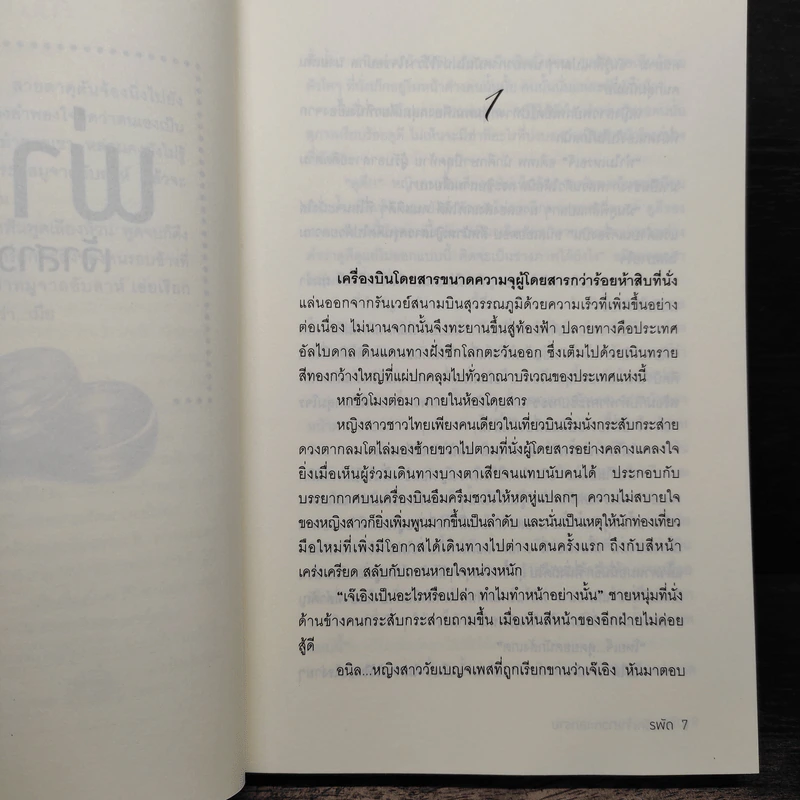 1
เครื่องบินโดยสารขนาดความจุผู้โดยสารกว่าร้อยห้าสิบที่นั่ง
แล่นออกจากรันเวย์สนามบินสุวรรณภูมิด้วยความเร็วที่เพิ่มขึ้นอย่าง
ต่อเนื่อง ไม่นานจากนั้นจึงทะยานขึ้นสู่ท้องฟ้า ปลายทางคือประเทศ
อัลไบดาล ดินแดนทางฝั่งซีกโลกตะวันออก ซึ่งเต็มไปด้วยเนินทราย
สีทองกว้างใหญ่ที่แผ่ปกคลุมไปทั่วอาณาบริเวณของประเทศแห่งนี้
หกชั่วโมงต่อมา ภายในห้องโดยสาร
หญิงสาวชาวไทยเพียงคนเดียวในเที่ยวบินเริ่มนั่งกระสับกระส่าย
ดวงตากลมโตไล่มองซ้ายขวาไปตามที่นั่งผู้โดยสารอย่างคลางแคลงใจ
ยิ่งเมื่อเห็นผู้ร่วมเดินทางบางตาเสียจนแทบนับคนได้ ประกอบกับ
บรรยากาศบนเครื่องบินอึมครึมชวนให้หดหู่แปลกๆ ความไม่สบายใจ
ของหญิงสาวก็ยิ่งเพิ่มพูนมากขึ้นเป็นลำดับ และนั่นเป็นเหตุให้นักท่องเที่ยว
มือใหม่ที่เพิ่งมีโอกาสได้เดินทางไปต่างแดนครั้งแรก ถึงกับสีหน้า
เคร่งเครียด สลับกับถอนหายใจหน่วงหนัก
“เจ๊เอิงเป็นอะไรหรือเปล่า ทำไมทำหน้าอย่างนั้น” ชายหนุ่มที่นั่ง
ด้านข้างคนกระสับกระส่ายถามขึ้น เมื่อเห็นสีหน้าของอีกฝ่ายไม่ค่อย
สู้ดี
อนิล...หญิงสาววัยเบญจเพสที่ถูกเรียกขานว่าเจ๊เอิง หันมาตอบ
รพัด 7